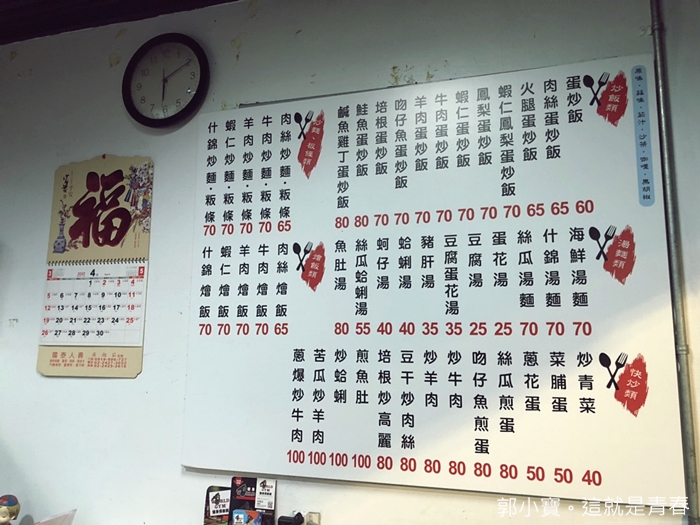 原味·蒜味·茄汁·沙茶·咖哩·黑胡椒
炒飯類
蛋炒飯 60
肉絲蛋炒飯 65
火腿蛋炒飯 65
蝦仁鳳梨蛋炒飯 70
鳳梨蛋炒飯 70
蝦仁蛋炒飯 70
牛肉蛋炒飯 70
羊肉蛋炒飯 70
吻仔魚蛋炒飯 70
培根蛋炒飯 70
鮭魚蛋炒飯 80
鹹魚雞丁蛋炒飯 80
炒麵、粄條類
肉絲炒麵·粄條 65
牛肉炒麵·粄條 70
羊肉炒麵·粄條 70
蝦仁炒麵·粄條 70
什錦炒麵·粄條 70
湯麵類
海鮮湯麵 70
什錦湯麵 70
絲瓜湯麵 70
蛋花湯 25
豆腐湯 25
豆腐蛋花湯 35
豬肝湯 35
蛤蜊湯 40
蚵仔湯 40
絲瓜蛤蜊湯 55
魚肚湯 80
燴飯類
肉絲燴飯 65
牛肉燴飯 70
羊肉燴飯 70
蝦仁燴飯 70
什錦燴飯 70
快炒類
炒青菜 40
菜脯蛋 50
蔥花蛋 50
絲瓜煎蛋 80
吻仔魚煎蛋 80
炒牛肉 80
炒羊肉 80
豆干炒肉絲 80
培根炒高麗 80
煎魚肚 100
炒蛤蜊 100
苦瓜炒羊肉 100
蔥爆炒牛肉 100
福
4
1 2 3 4
5 6 7 8 9 10 11
12 13 14 15 16 17 18
19 20 21 22 23 24 25
26 27 28 29 30
郭小寶。這就是青春